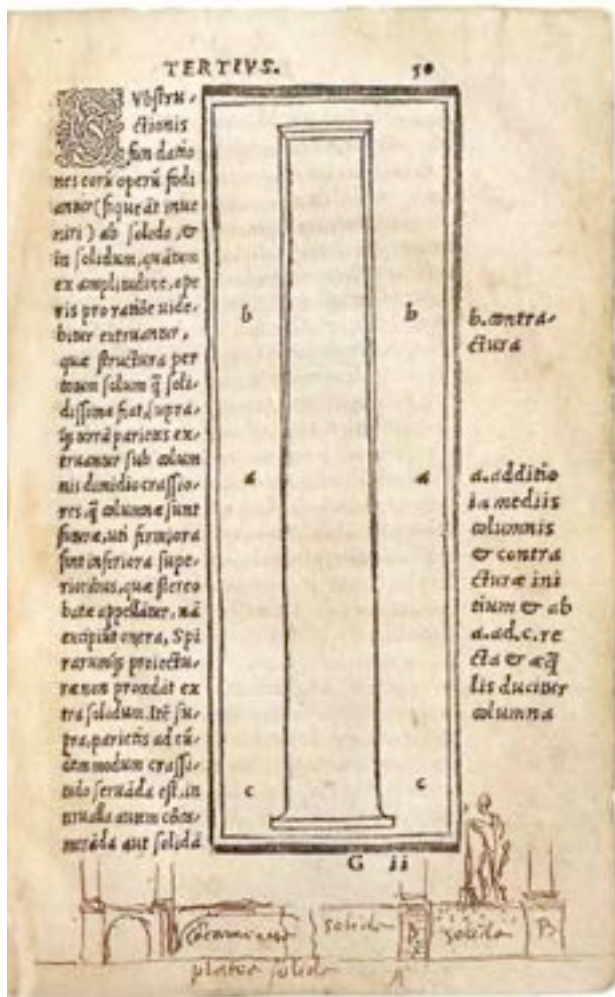 TERTIVS. 50
SVbstru-
ctionis
fundatio
nes eorũ operũ fodi
antur (si queãt inue
niri) ab solido, &
in solidum, quãtum
ex amplitudine, ope
ris pro ratiõe uide-
bitur extruantur,
quæ structura per
totum solum q̃ soli-
dissima fiat, supra-
q̃ terrã parietes ex-
truantur sub colum
nis dimidio crassio-
res, q̃ columnæ sunt
futuræ, uti firmiora
sint inferiora supe-
rioribus, quæ stereo
batæ appellãtur, nã
excipiũt onera, Spi
rarumq̃ proiectu-
ræ non procedãt ex
tra solidum. Itẽ su-
pra, parietis ad eũ-
dem modum crassi-
tudo seruãda est, in
terualla autem cõca-
merãda aut solidã
b b
a a
c c
b. contra-
ctura
a. additio
in mediis
columnis
& contra
cturæ ini
tium & ab
a. ad. c. re
cta & æq̃
lis ducitur
columna
G ii
solido B solida B
platea solida A